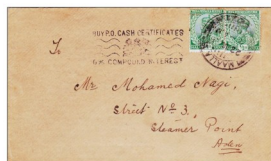 BUY P.O. CASH CERTIFICATES
COMPOUND INTEREST
To
Mr Mohamed Nagi,
Street No 3,
Steamer Point
Aden